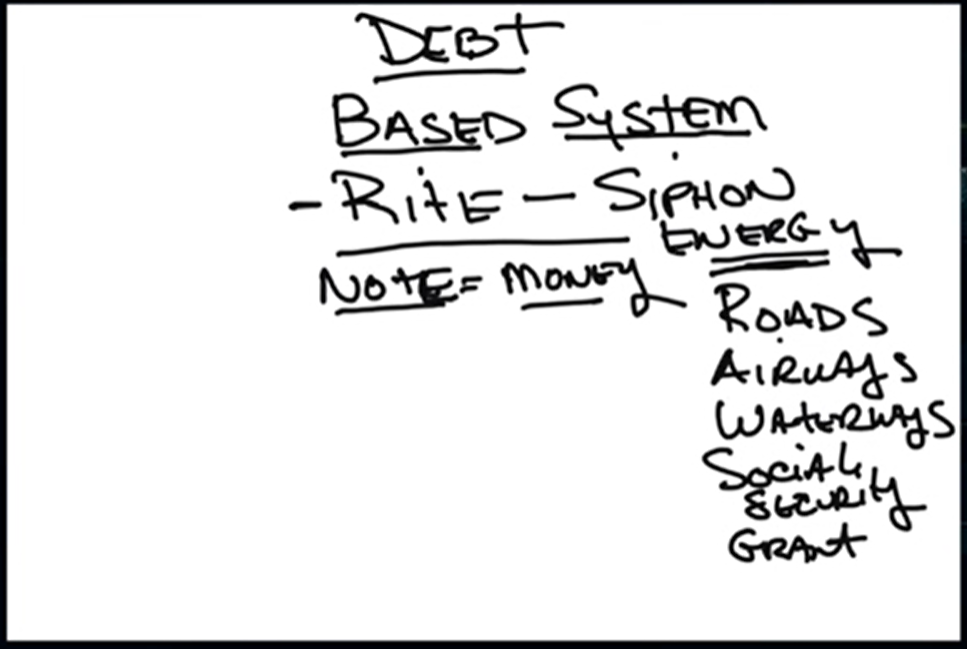 DEBT
BASED SYSTEM
- RITE - SIPHON
ENERGY
NOTE = MONEY
ROADS
AIRWAYS
WATERWAYS
SOCIAL
SECURITY
GRANT